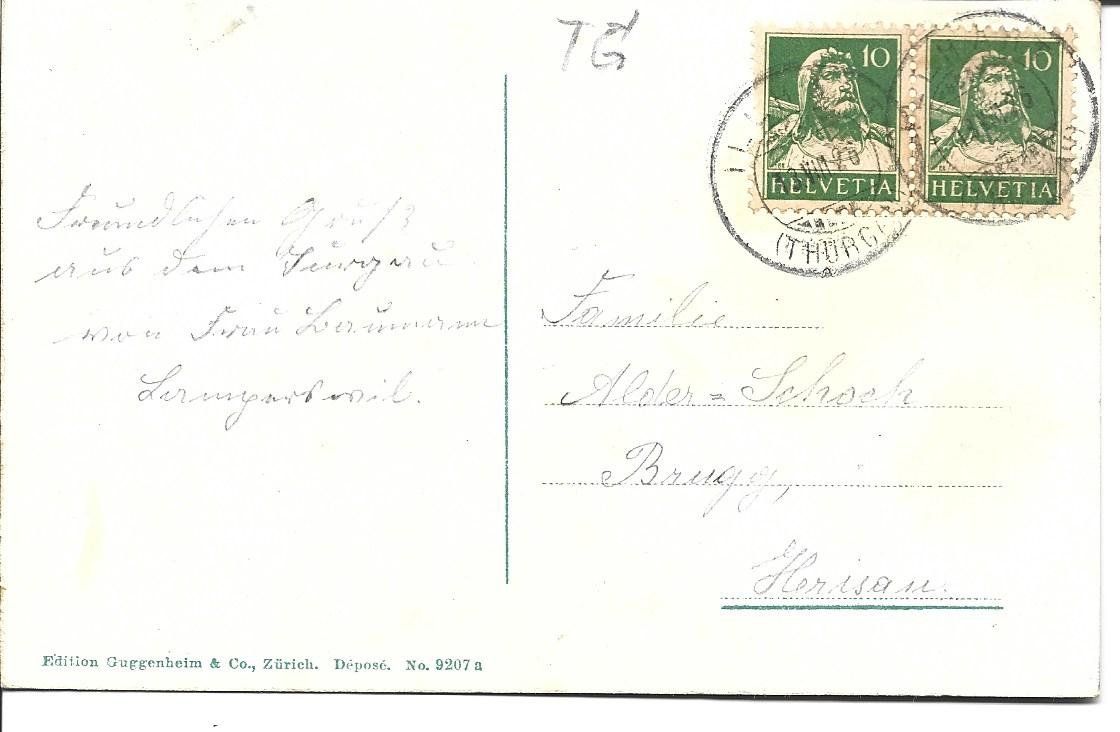 TG
10 10
HELVETIA HELVETIA
(THURG
Freundlichen Gruß
aus dem Turgau
von Frau Baumann
Lamperswil.
Familie
Alder = Schoch
Brugg,
Herisau.
Edition Guggenheim & Co., Zürich. Déposé. No. 9207a